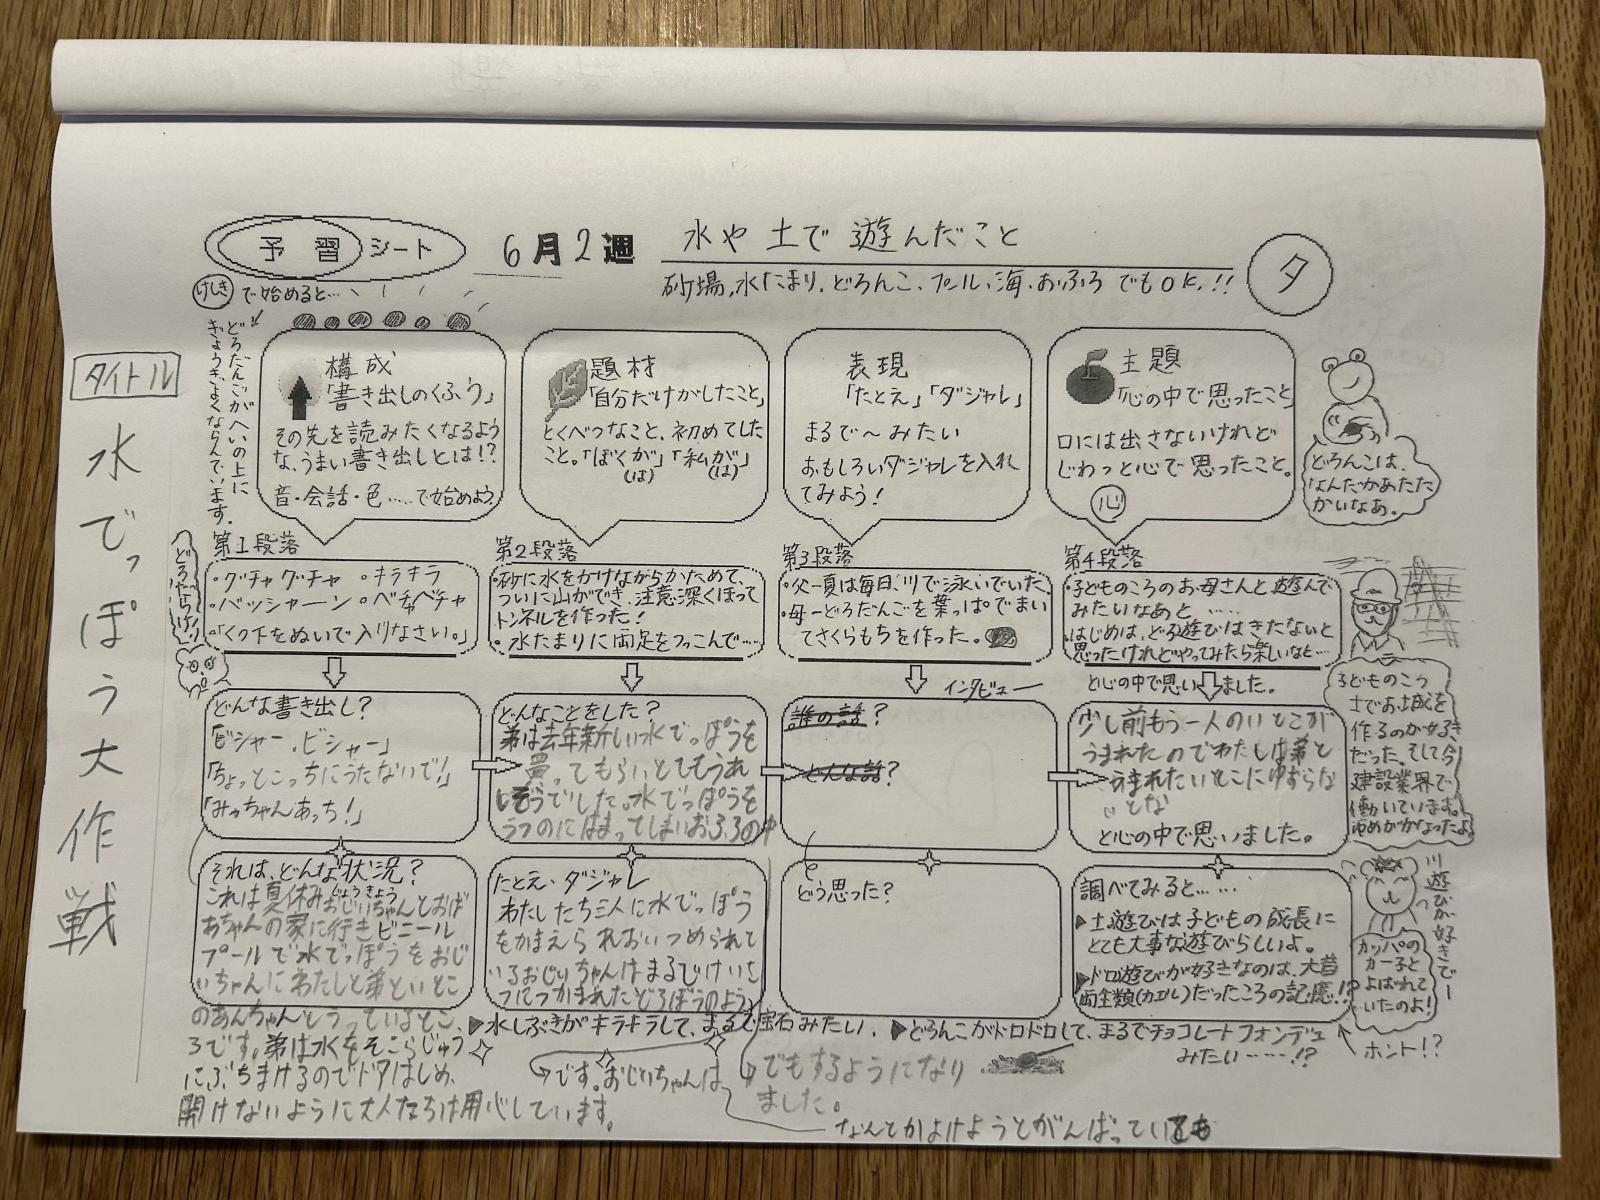 予習シート
6月2週
水や土で遊んだこと
砂場、水たまり、どろんこ、プール、海、おふろでもOK.!!
夕
けしきで始めると…
どろだんごがへいの上に
ぎょうぎよくならんでいます。
タイトル
水でっぽう大作戦
構成
「書き出しのくふう」
その先を読みたくなるよう
な、うまい書き出しとは!?
音・会話・色……で始めよう
題材
「自分だけがしたこと」
とくべつなこと、初めてした
こと。「ぼくが」「私が」
(は) (は)
表現
「たとえ」「ダジャレ」
まるで〜みたい
おもしろいダジャレを入れ
てみよう!
主題
「心の中で思ったこと」
口には出さないけれど
じわっと心で思ったこと。
心
どろんこは、
なんだかあたた
かいなあ。
第1段落
・グチャグチャ ・キラキラ
・バッシャーン ・ベチャベチャ
・「くつ下をぬいで入りなさい。」
第2段落
・砂に水をかけながらかためて、
ついに山ができ、注意深くほって
トンネルを作った!
・水たまりに両足をつっこんで……
第3段落
・父ー夏は毎日、川で泳いでいた。
・母ーどろだんごを葉っぱでまい
てさくらもちを作った。
第4段落
・子どものころのお母さんと遊んで
みたいなあと……
はじめは、どろ遊びはきたないと
思ったけれどやってみたら楽しいなと…
と心の中で思いました。
どんな書き出し?
「ビシャー、ビシャー」
「ちょっとこっちにうたないで!」
「みっちゃんあっち!」
どんなことをした?
弟は去年新しい水でっぽうを
買ってもらいとてもうれ
しそうでした。水でっぽうを
うつのにはまってしまいおふろの中
インタビュー
誰の話?
どんな話?
少し前もう一人のいとこが
うまれたのでわたしは弟と
うまれたいとこにゆずらな
いとな
と心の中で思いました。
子どものころ
土でお城を
作るのが好き
だった。そして今
建設業界で
働いています。
ゆめがかなったよ
それは、どんな状況?
じょうきょう
これは夏休みおじいちゃんとおば
あちゃんの家に行きビニール
プールで水でっぽうをおじ
いちゃんにわたしと弟といとこ
のあんちゃんとうっているとこ
ろです。弟は水をそこらじゅう
にぶちまけるのでドアはしめ、
開けないように大人たちは用心しています。
たとえ・ダジャレ
わたしたち三人に水でっぽう
をかまえられおいつめられて
いるおじいちゃんはまるでけいさ
つにつかまれたどろぼうのよう
です。おじいちゃんは
なんとかよけようとがんばっていても
でもするようになり
ました。
どう思った?
調べてみると……
▶土遊びは子どもの成長に
とても大事な遊びらしいよ。
▶ドロ遊びが好きなのは、大昔
両生類(カエル)だったころの記憶!?
ホント!?
川遊びが好きでー
カッパの
カー子と
よばれて
いたのよ!
▶水しぶきがキラキラして、まるで宝石みたい。
▶どろんこがドロドロして、まるでチョコレートフォンデュ
みたい……!?